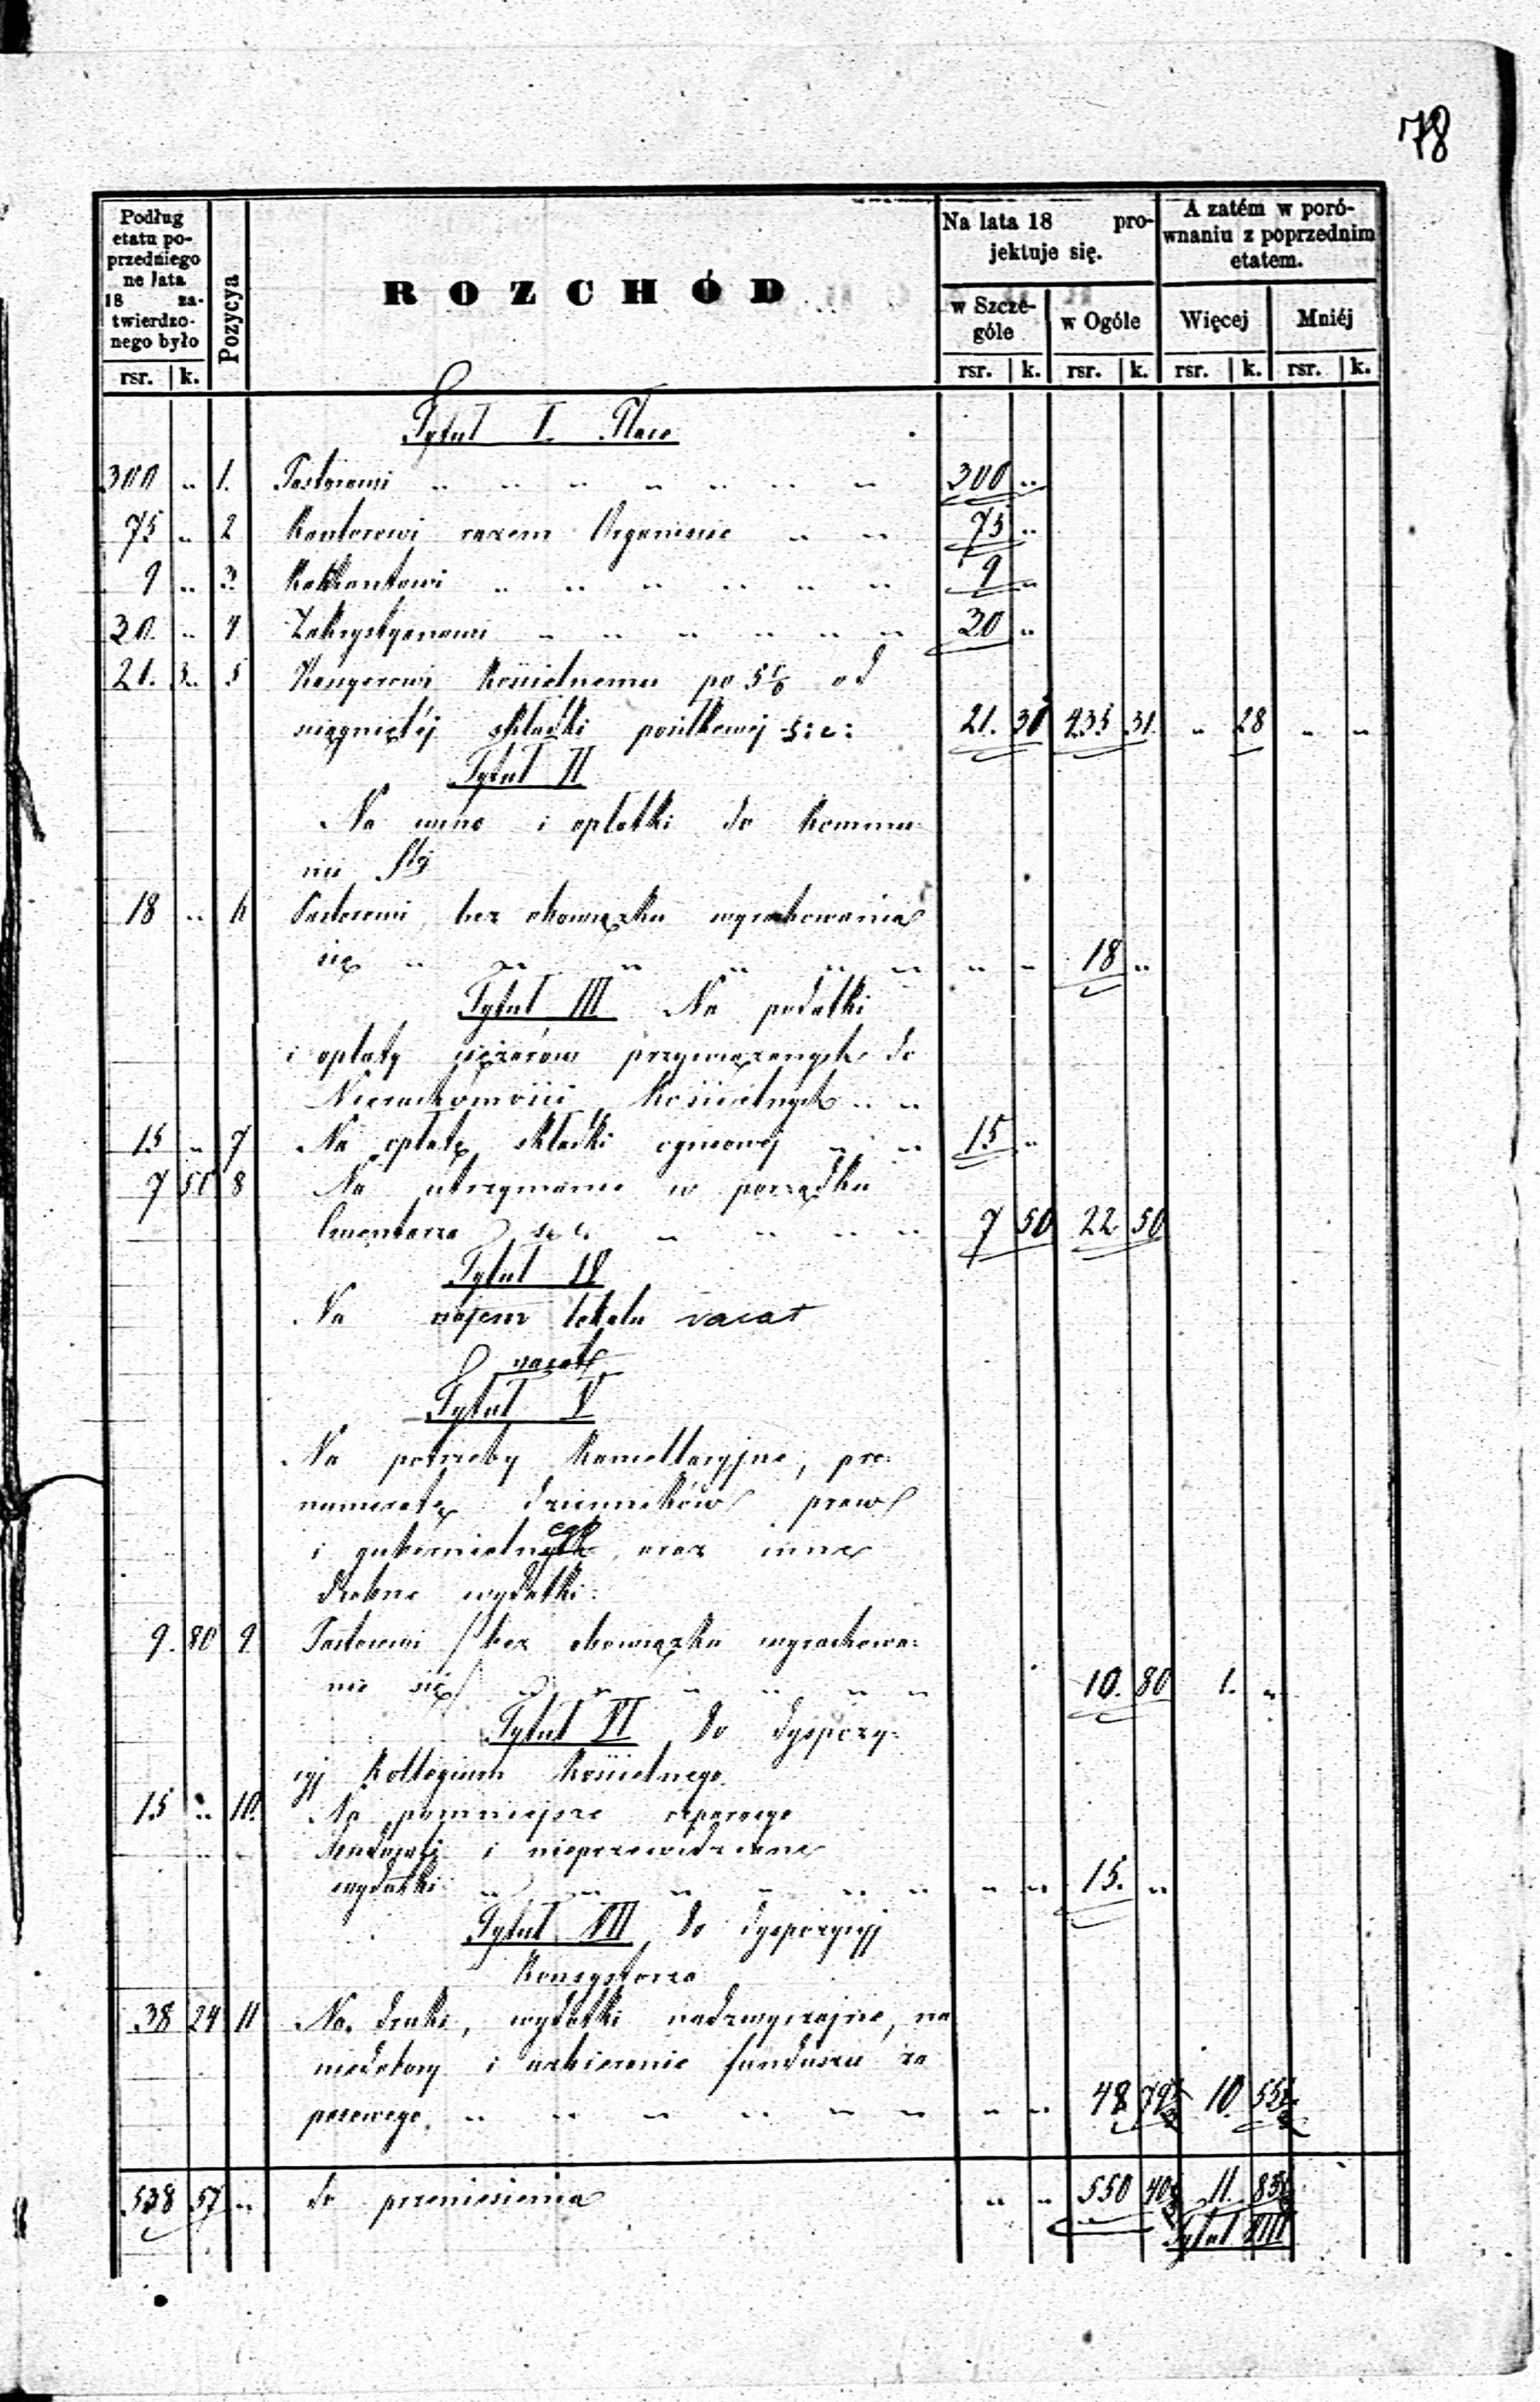 78
Podług etatu poprzedniego ne lata 18 zatwierdzonego było
Pozycya
ROZCHÓD
Na lata 18 projektuje się.
A zatém w porównaniu z poprzednim etatem.
w Szczególe w Ogóle Więcej Mniéj
rsr. k. rsr. k. rsr. k. rsr. k. rsr. k.
Tytuł I. Płace
300 " 1. Pastorowi " " " " " " " 300 "
75 " 2 Kantorowi razem Organiście " " 75 "
9 " 3. Kalkantowi " " " " " " 9 "
30. " 4 Zakrystyanowi " " " " " " 30 "
21. 3 " 5 Kasyerowi Kościelnemu po 5 % od
ściągniętéj składki posiłkowej 21. 31 435 31. " 28 " "
Tytuł II
Na wino i opłatki do Kommu-
nii Stéj
18 " 6 Pastorowi bez obowiązku wyrachowania
się " " " " " " " " 18 "
Tytuł III Na podatki
i opłaty ciężarów przywiązanych do
Nieruchomości Kościelnych " "
15 " 7 Na opłatę składki ogniowéj " " 15 "
7 50 8 Na utrzymanie w porządku
Cmentarza " " " " 7 50 22 50
Tytuł IV
Na najem lokalu vacat
vacat
Tytuł V
Na potrzeby Kancellaryjne, pre-
numeratę dzienników praw
i gubernialnego oraz inne
drobne wydatki:
9. 80 9. Pastorowi / bez obowiązku wyrachowa-
nia się / " " " " " " 10. 80 1. "
Tytuł VI do dyspozy-
cyj Kollegium Kościelnego
15 " 10. Na pomniejsze reparacye
i nieprzewidziane
wydatki " " " " " " " " 15. "
Tytuł VII do dyspozycyj
Konsystorza
38 24 11 Na druki, wydatki nadzwyczajne, na
niedobory i uzbieranie funduszu za
pasowego. " " " " " " " " 48 79½ 10. 55½
538 57 " do przeniesienia " " 550 40½ 11. 83½
Tytuł VIII